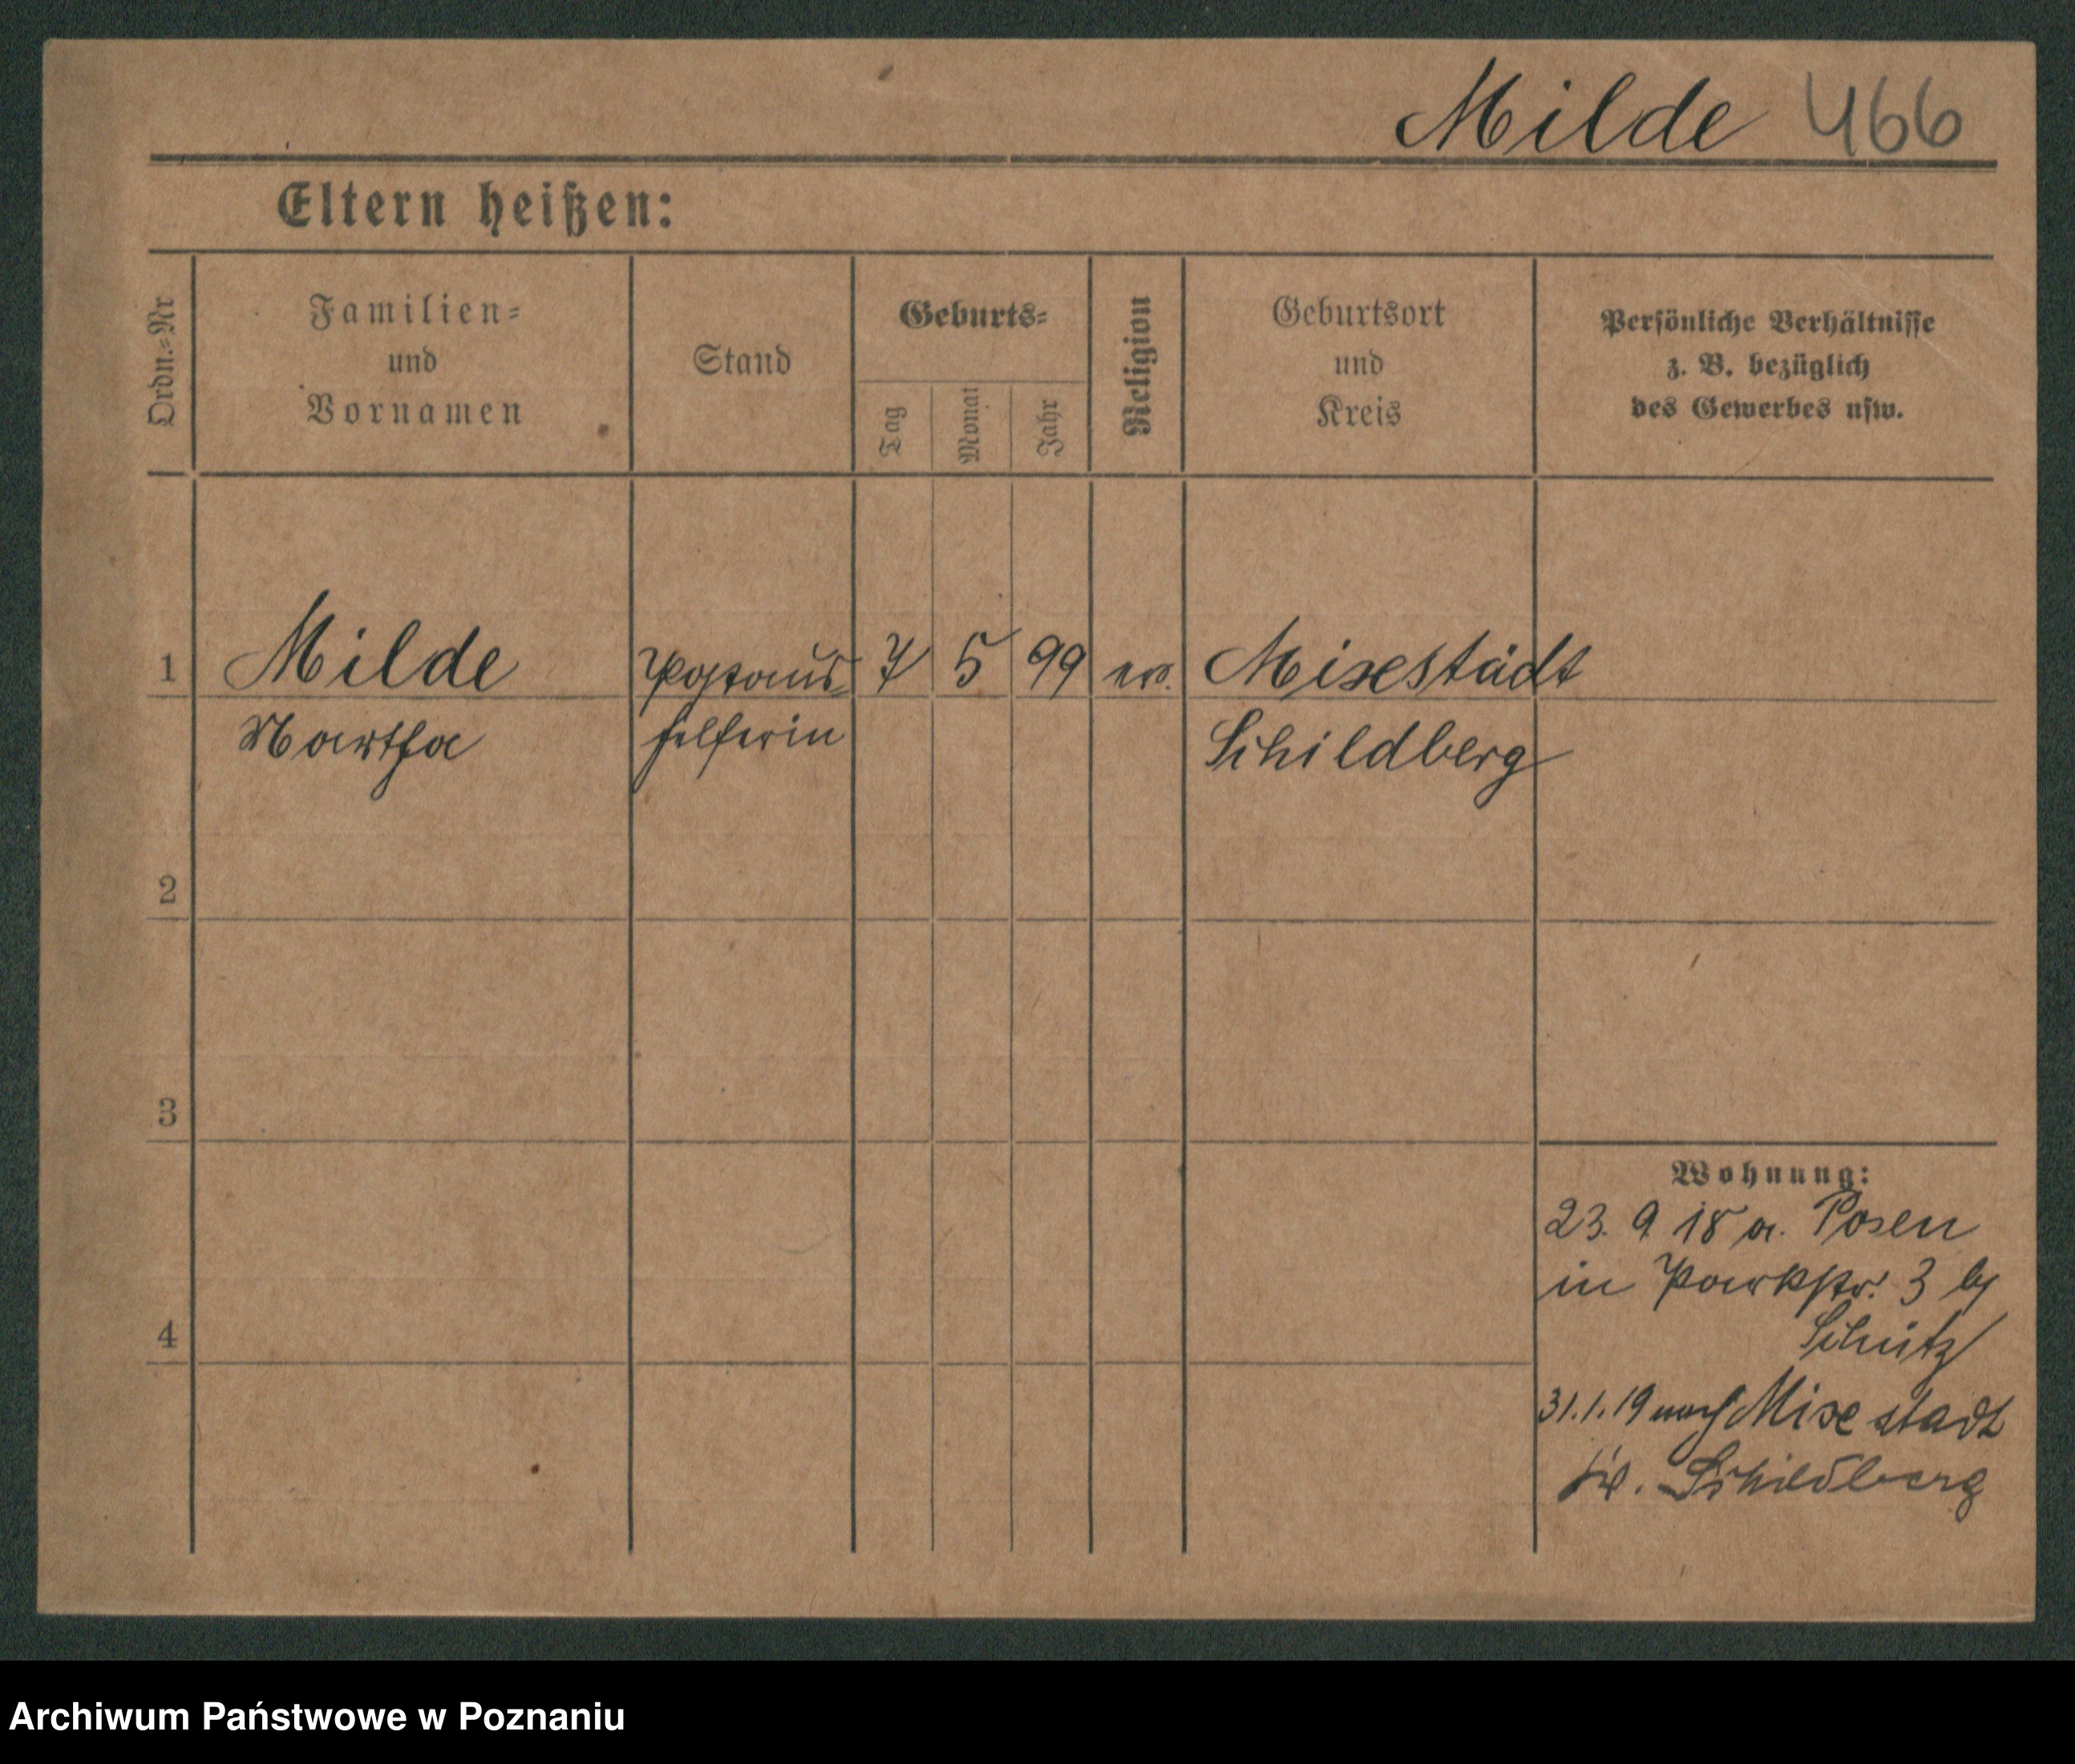 Milde 466
Eltern heißen:
Ordn.-Nr
Familien-
und
Vornamen
Stand
Geburts-
Tag
Monat
Jahr
Religion
Geburtsort
und
Kreis
Persönliche Verhältnisse
z. B. bezüglich
des Gewerbes usw.
1 Milde Postaus- 7 5 99 ev. Mixstädt
Martha helferin Schildberg
2
3
4
Wohnung:
23. 9 18 a. Posen
in Parkstr. 3 bj
Schütz
31.1.19 nach Mixstadt
Kr. Schildberg
Archiwum Państwowe w Poznaniu